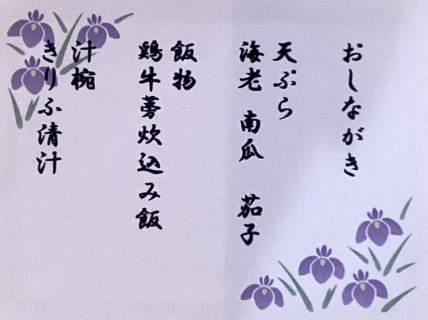 おしながき
天ぷら
海老 南瓜 茄子
飯物
鶏牛蒡炊込み飯
汁椀
きりふ清汁